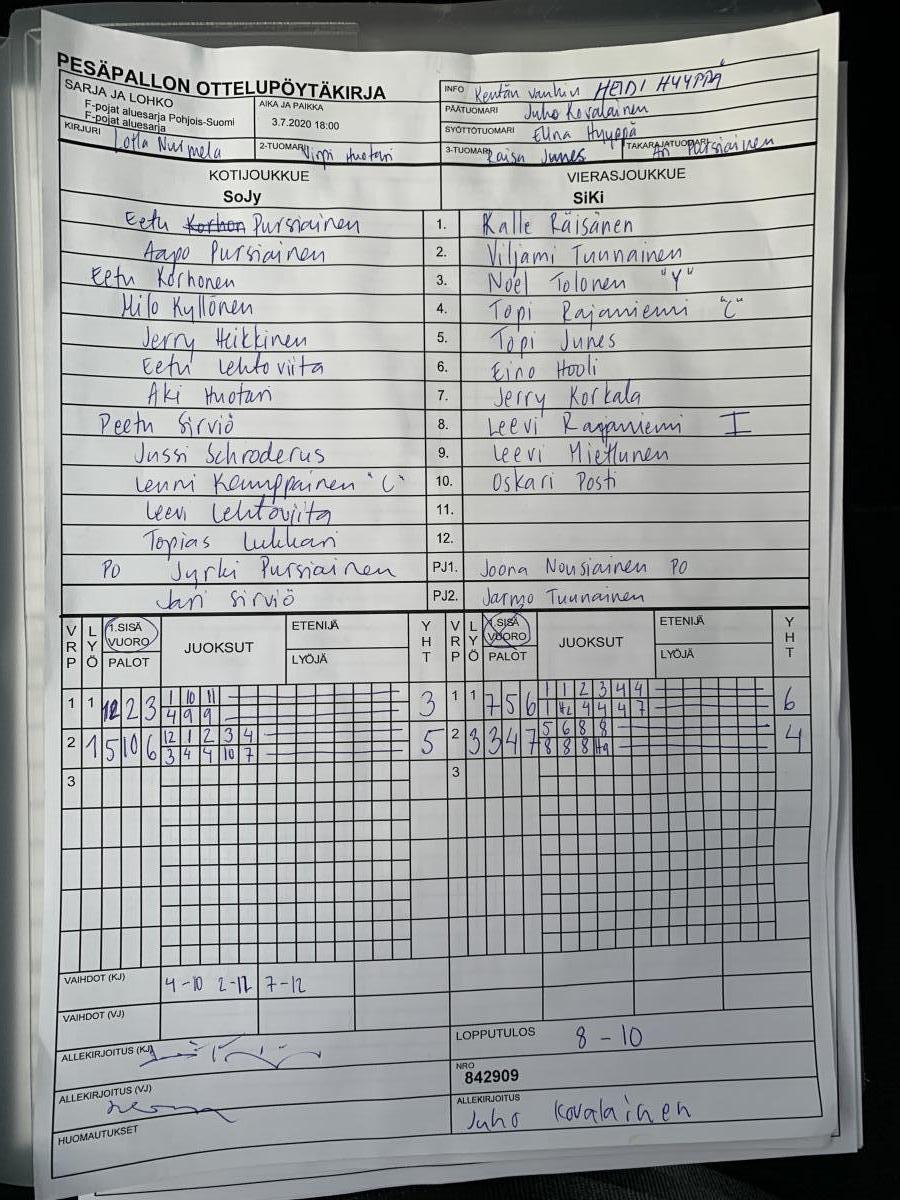 PESÄPALLON OTTELUPÖYTÄKIRJA
SARJA JA LOHKO
F-pojat aluesarja Pohjois-Suomi
F-pojat aluesarja
AIKA JA PAIKKA
3.7.2020 18:00
INFO Kentän vanhin HEIDI HYYPPÄ
PÄÄTUOMARI Juho Kovalainen
SYÖTTÖTUOMARI Elina Hyyppä
KIRJURI Lotta Nurmela
2-TUOMARI Virpi Huotari
3-TUOMARI Raisa Junes
TAKARAJATUOMARI Ari Pursiainen
KOTIJOUKKUE
SoJy
VIERASJOUKKUE
SiKi
Eetu Korhon Pursiainen 1. Kalle Räisänen
Aapo Pursiainen 2. Viljami Tuunainen
Eetu Korhonen 3. Noel Tolonen "Y"
Milo Kyllönen 4. Topi Rajaniemi "C"
Jerry Heikkinen 5. Topi Junes
Eetu Lehtoviita 6. Eino Hooli
Aki Huotari 7. Jerry Korkala
Peetu Sirviö 8. Leevi Rajaniemi I
Jussi Schroderus 9. Leevi Miettunen
Lenni Kemppainen "C" 10. Oskari Posti
Leevi Lehtoviita 11.
Topias Lukkari 12.
PO Jyrki Pursiainen PJ1. Joona Nousiainen PO
Jari Sirviö PJ2. Jarmo Tuunainen
VRP LYÖ 1.SISÄ VUORO PALOT JUOKSUT ETENIJÄ LYÖJÄ YHT VRP LYÖ 1.SISÄ VUORO PALOT JUOKSUT ETENIJÄ LYÖJÄ YHT
1 1 12 2 3 1 10 11 3 1 1 7 5 6 1 1 2 3 4 4 6
4 9 9 1 H2 4 4 4 7
2 1 5 10 6 12 1 2 3 4 5 2 3 3 4 7 5 6 8 8 4
3 4 4 10 7 8 8 8 H9
3 3
VAIHDOT (KJ) 4-10 2-11 7-12
VAIHDOT (VJ)
ALLEKIRJOITUS (KJ)
LOPPUTULOS 8 - 10
ALLEKIRJOITUS (VJ)
NRO
842909
HUOMAUTUKSET
ALLEKIRJOITUS
Juho Kovalainen